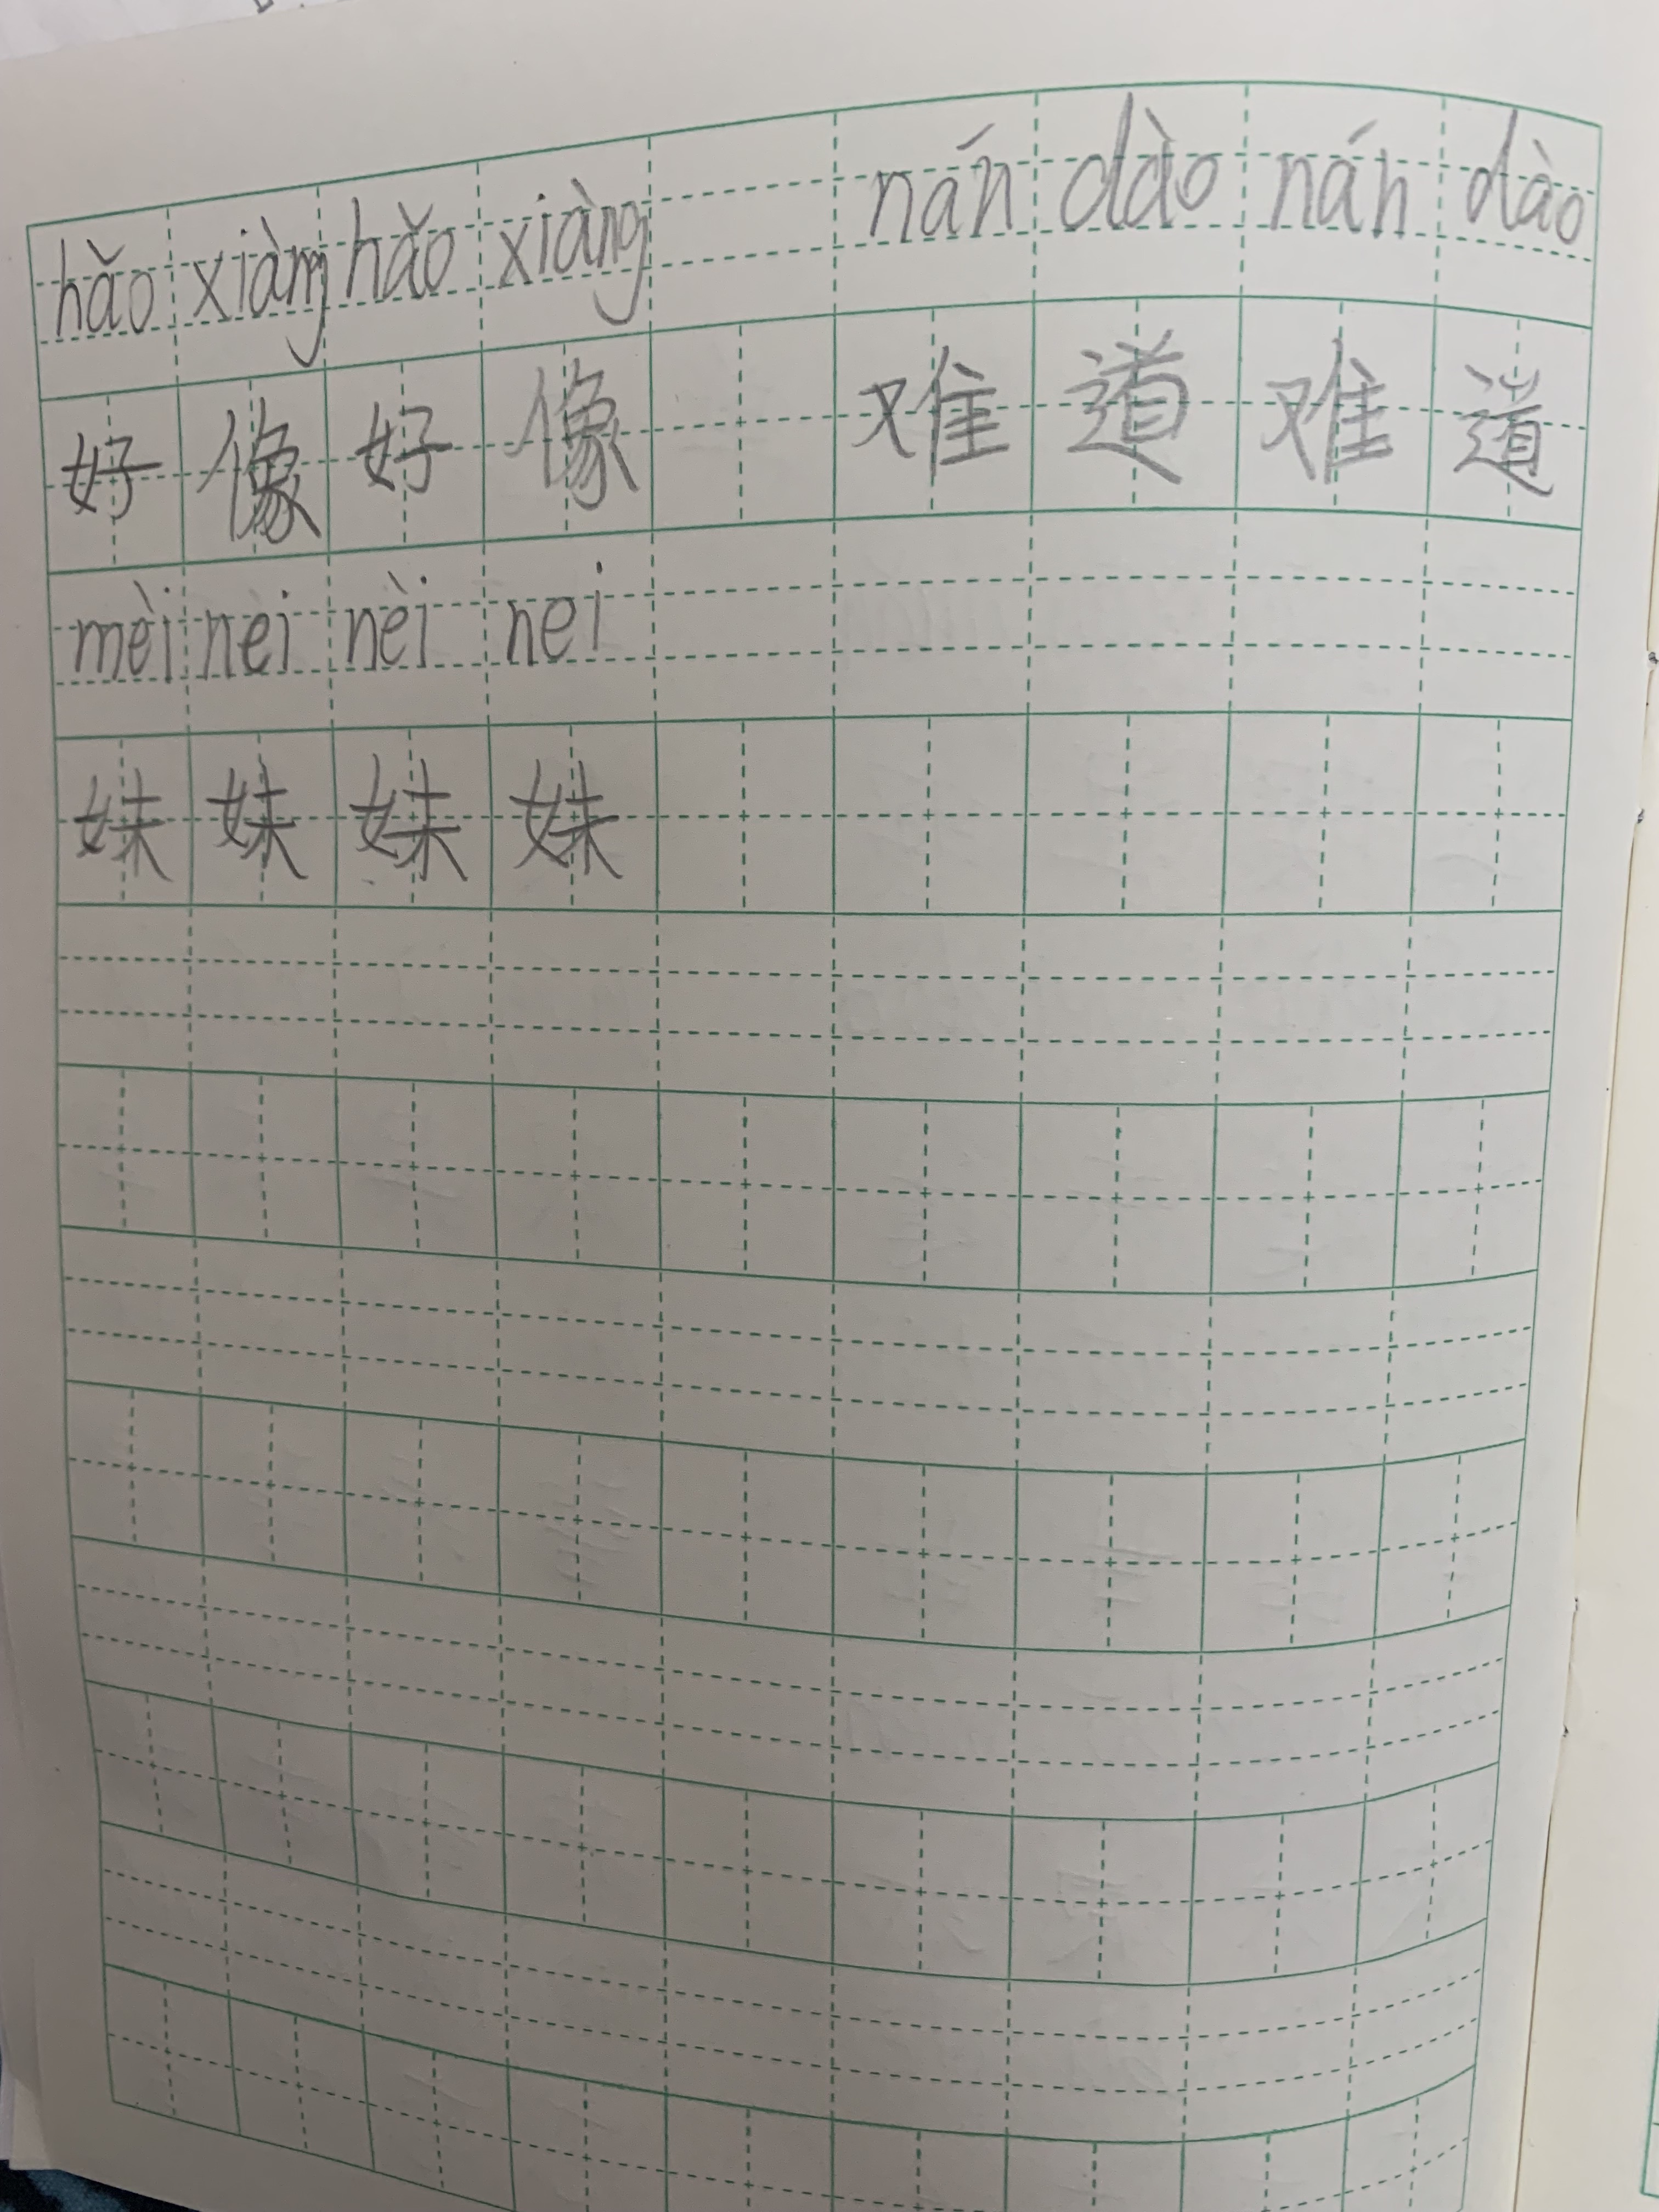 hǎo xiàng hǎo xiàng nán dào nán dào
好像好像 难道难道
mèi nei nèi nei
妹妹妹妹